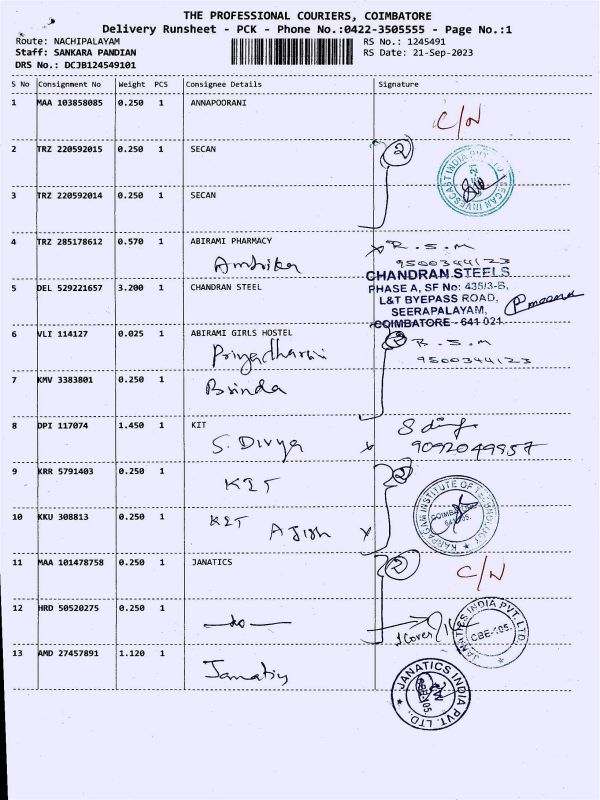 THE PROFESSIONAL COURIERS, COIMBATORE
Delivery Runsheet - PCK - Phone No.:0422-3505555 - Page No.:1
Route: NACHIPALAYAM RS No.: 1245491
Staff: SANKARA PANDIAN RS Date: 21-Sep-2023
DRS No.: DCJB124549101
S No Consignment No Weight PCS Consignee Details Signature
1 MAA 103858085 0.250 1 ANNAPOORANI
C/N
2 TRZ 220592015 0.250 1 SECAN 2
3 TRZ 220592014 0.250 1 SECAN
4 TRZ 285178612 0.570 1 ABIRAMI PHARMACY R.S.M
Ambika 9500344123
CHANDRAN STEELS
5 DEL 529221657 3.200 1 CHANDRAN STEEL PHASE A, SF No: 435/3-B,
L&T BYEPASS ROAD,
SEERAPALAYAM,
COIMBATORE - 641 021
6 VLI 114127 0.025 1 ABIRAMI GIRLS HOSTEL 2 R.S.M
Priyadharsini 9500344123
7 KMV 3383801 0.250 1
Brinda
8 DPI 117074 1.450 1 KIT
S. Divya 9092049957
9 KRR 5791403 0.250 1 2
KIT
KARPAGAM INSTITUTE OF TECHNOLOGY
10 KKU 308813 0.250 1 KIT
Ajish
11 MAA 101478758 0.250 1 JANATICS 2 C/N
12 HRD 50520275 0.250 1 -do-
1 Cover
JANATICS INDIA PVT. LTD.
CBE-105.
13 AMD 27457891 1.120 1
Janatics
JANATICS INDIA PVT. LTD.